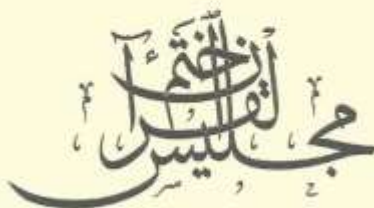 مجليس ختم القرآن